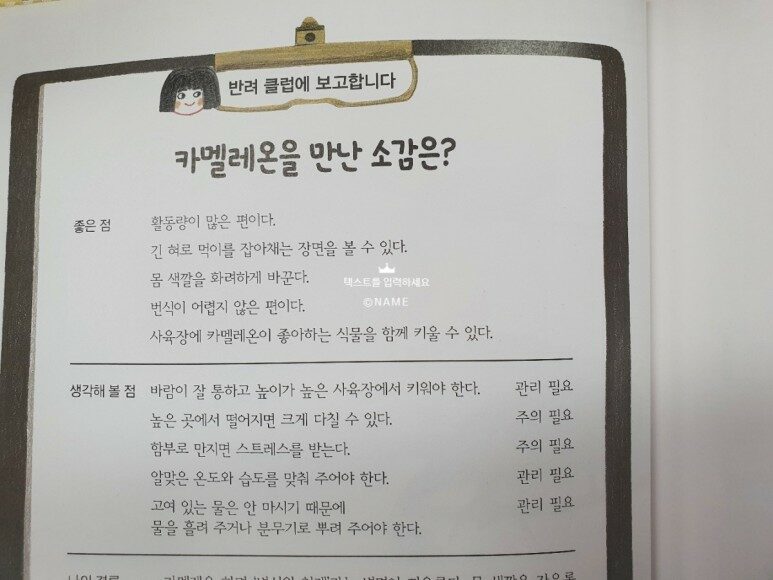 반려 클럽에 보고합니다
카멜레온을 만난 소감은?
좋은 점 활동량이 많은 편이다.
긴 혀로 먹이를 잡아채는 장면을 볼 수 있다.
몸 색깔을 화려하게 바꾼다.
텍스트를 입력하세요
©NAME
번식이 어렵지 않은 편이다.
사육장에 카멜레온이 좋아하는 식물을 함께 키울 수 있다.
생각해 볼 점 바람이 잘 통하고 높이가 높은 사육장에서 키워야 한다. 관리 필요
높은 곳에서 떨어지면 크게 다칠 수 있다. 주의 필요
함부로 만지면 스트레스를 받는다. 주의 필요
알맞은 온도와 습도를 맞춰 주어야 한다. 관리 필요
고여 있는 물은 안 마시기 때문에 관리 필요
물을 흘려 주거나 분무기로 뿌려 주어야 한다.